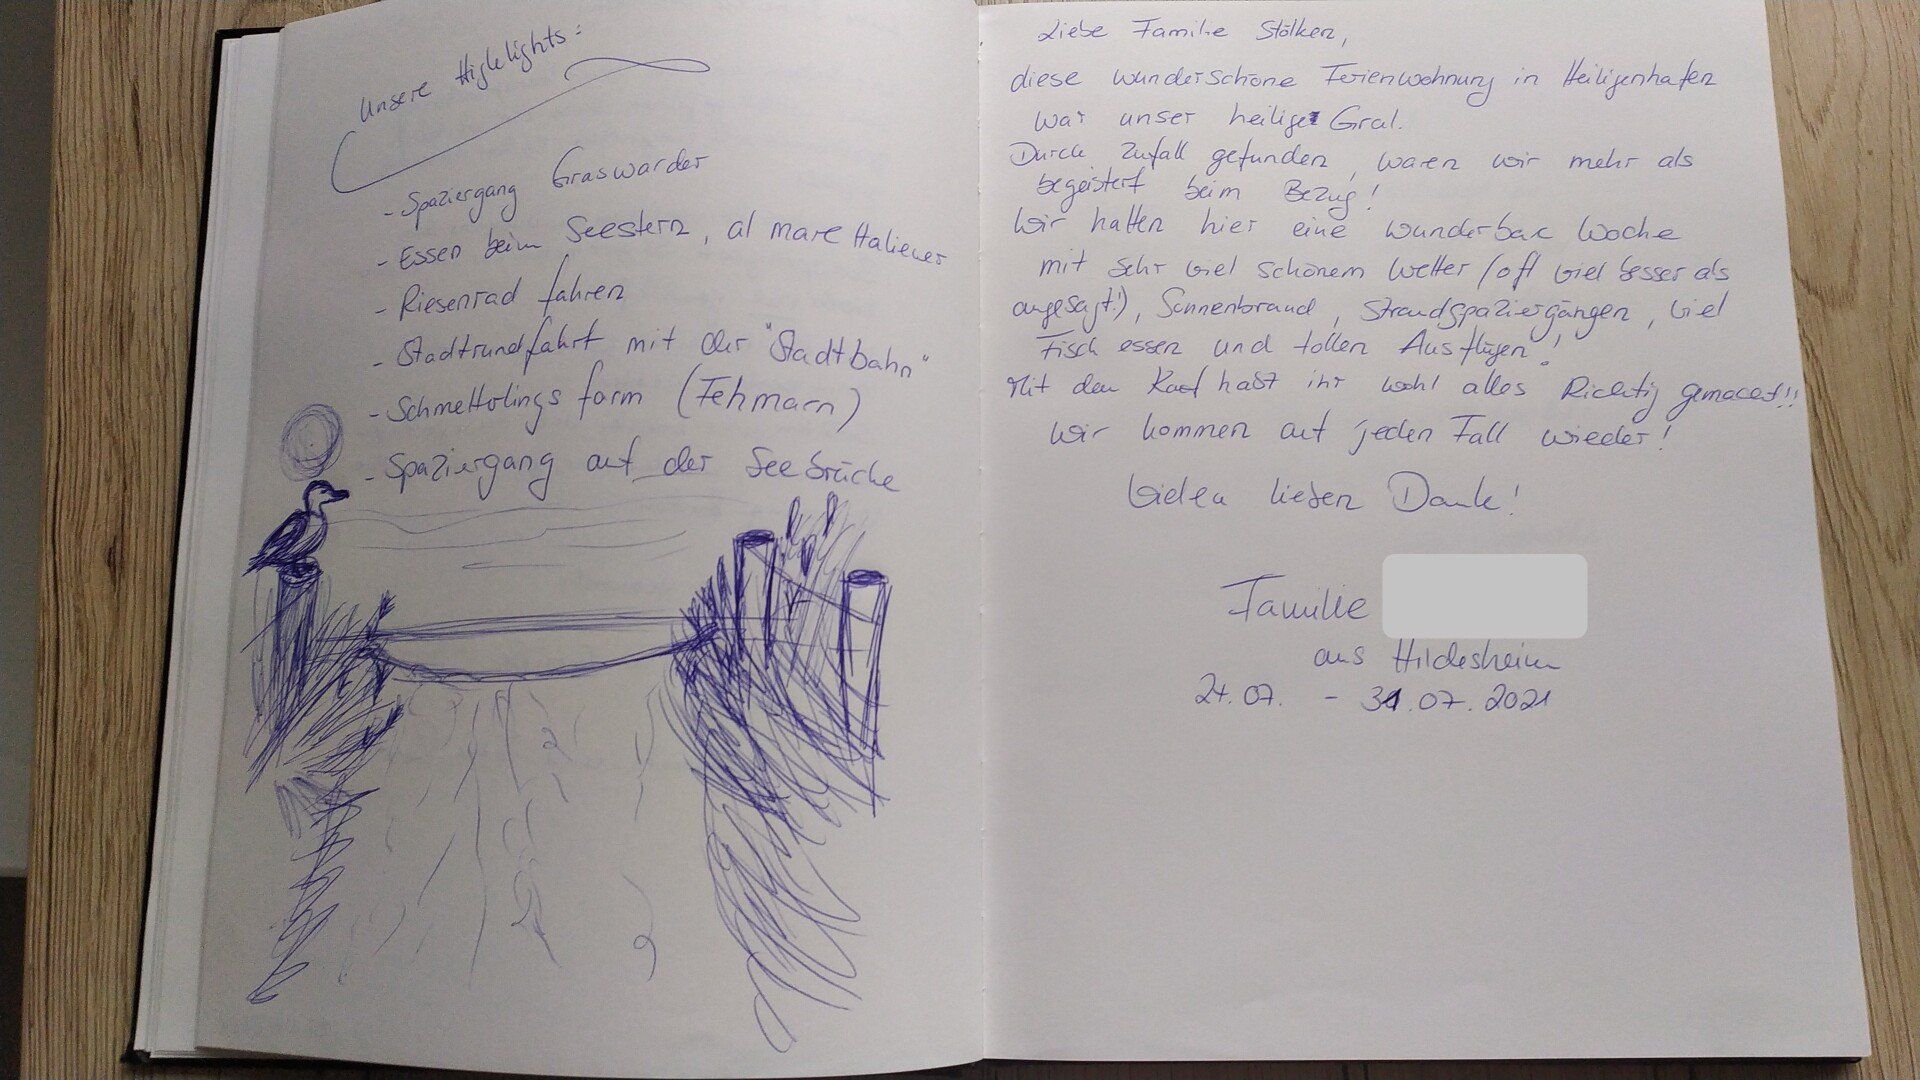 Unsere Highlights:
- Spaziergang Graswarder
- Essen beim Seestern, al mare Italiener
- Riesenrad fahren
- Stadtrundfahrt mit der "Stadtbahn"
- Schmetterlings farm (Fehmarn)
- Spaziergang auf der Seebrücke
Liebe Familie Stölken,
diese wunderschöne Ferienwohnung in Heiligenhafen
war unser heilige Gral.
Durch Zufall gefunden, waren wir mehr als
begeistert beim Bezug!
Wir hatten hier eine wunderbare Woche
mit sehr viel schönem Wetter (oft viel besser als
angesagt!), Sonnenbrand, Strandspaziergängen, viel
Fisch essen und tollen Ausflügen!
Mit dem Kauf habt ihr wohl alles Richtig gemacht!!!
Wir kommen auf jeden Fall wieder!
Vielen lieben Dank!
Familie
aus Hildesheim
24.07. - 31.07.2021